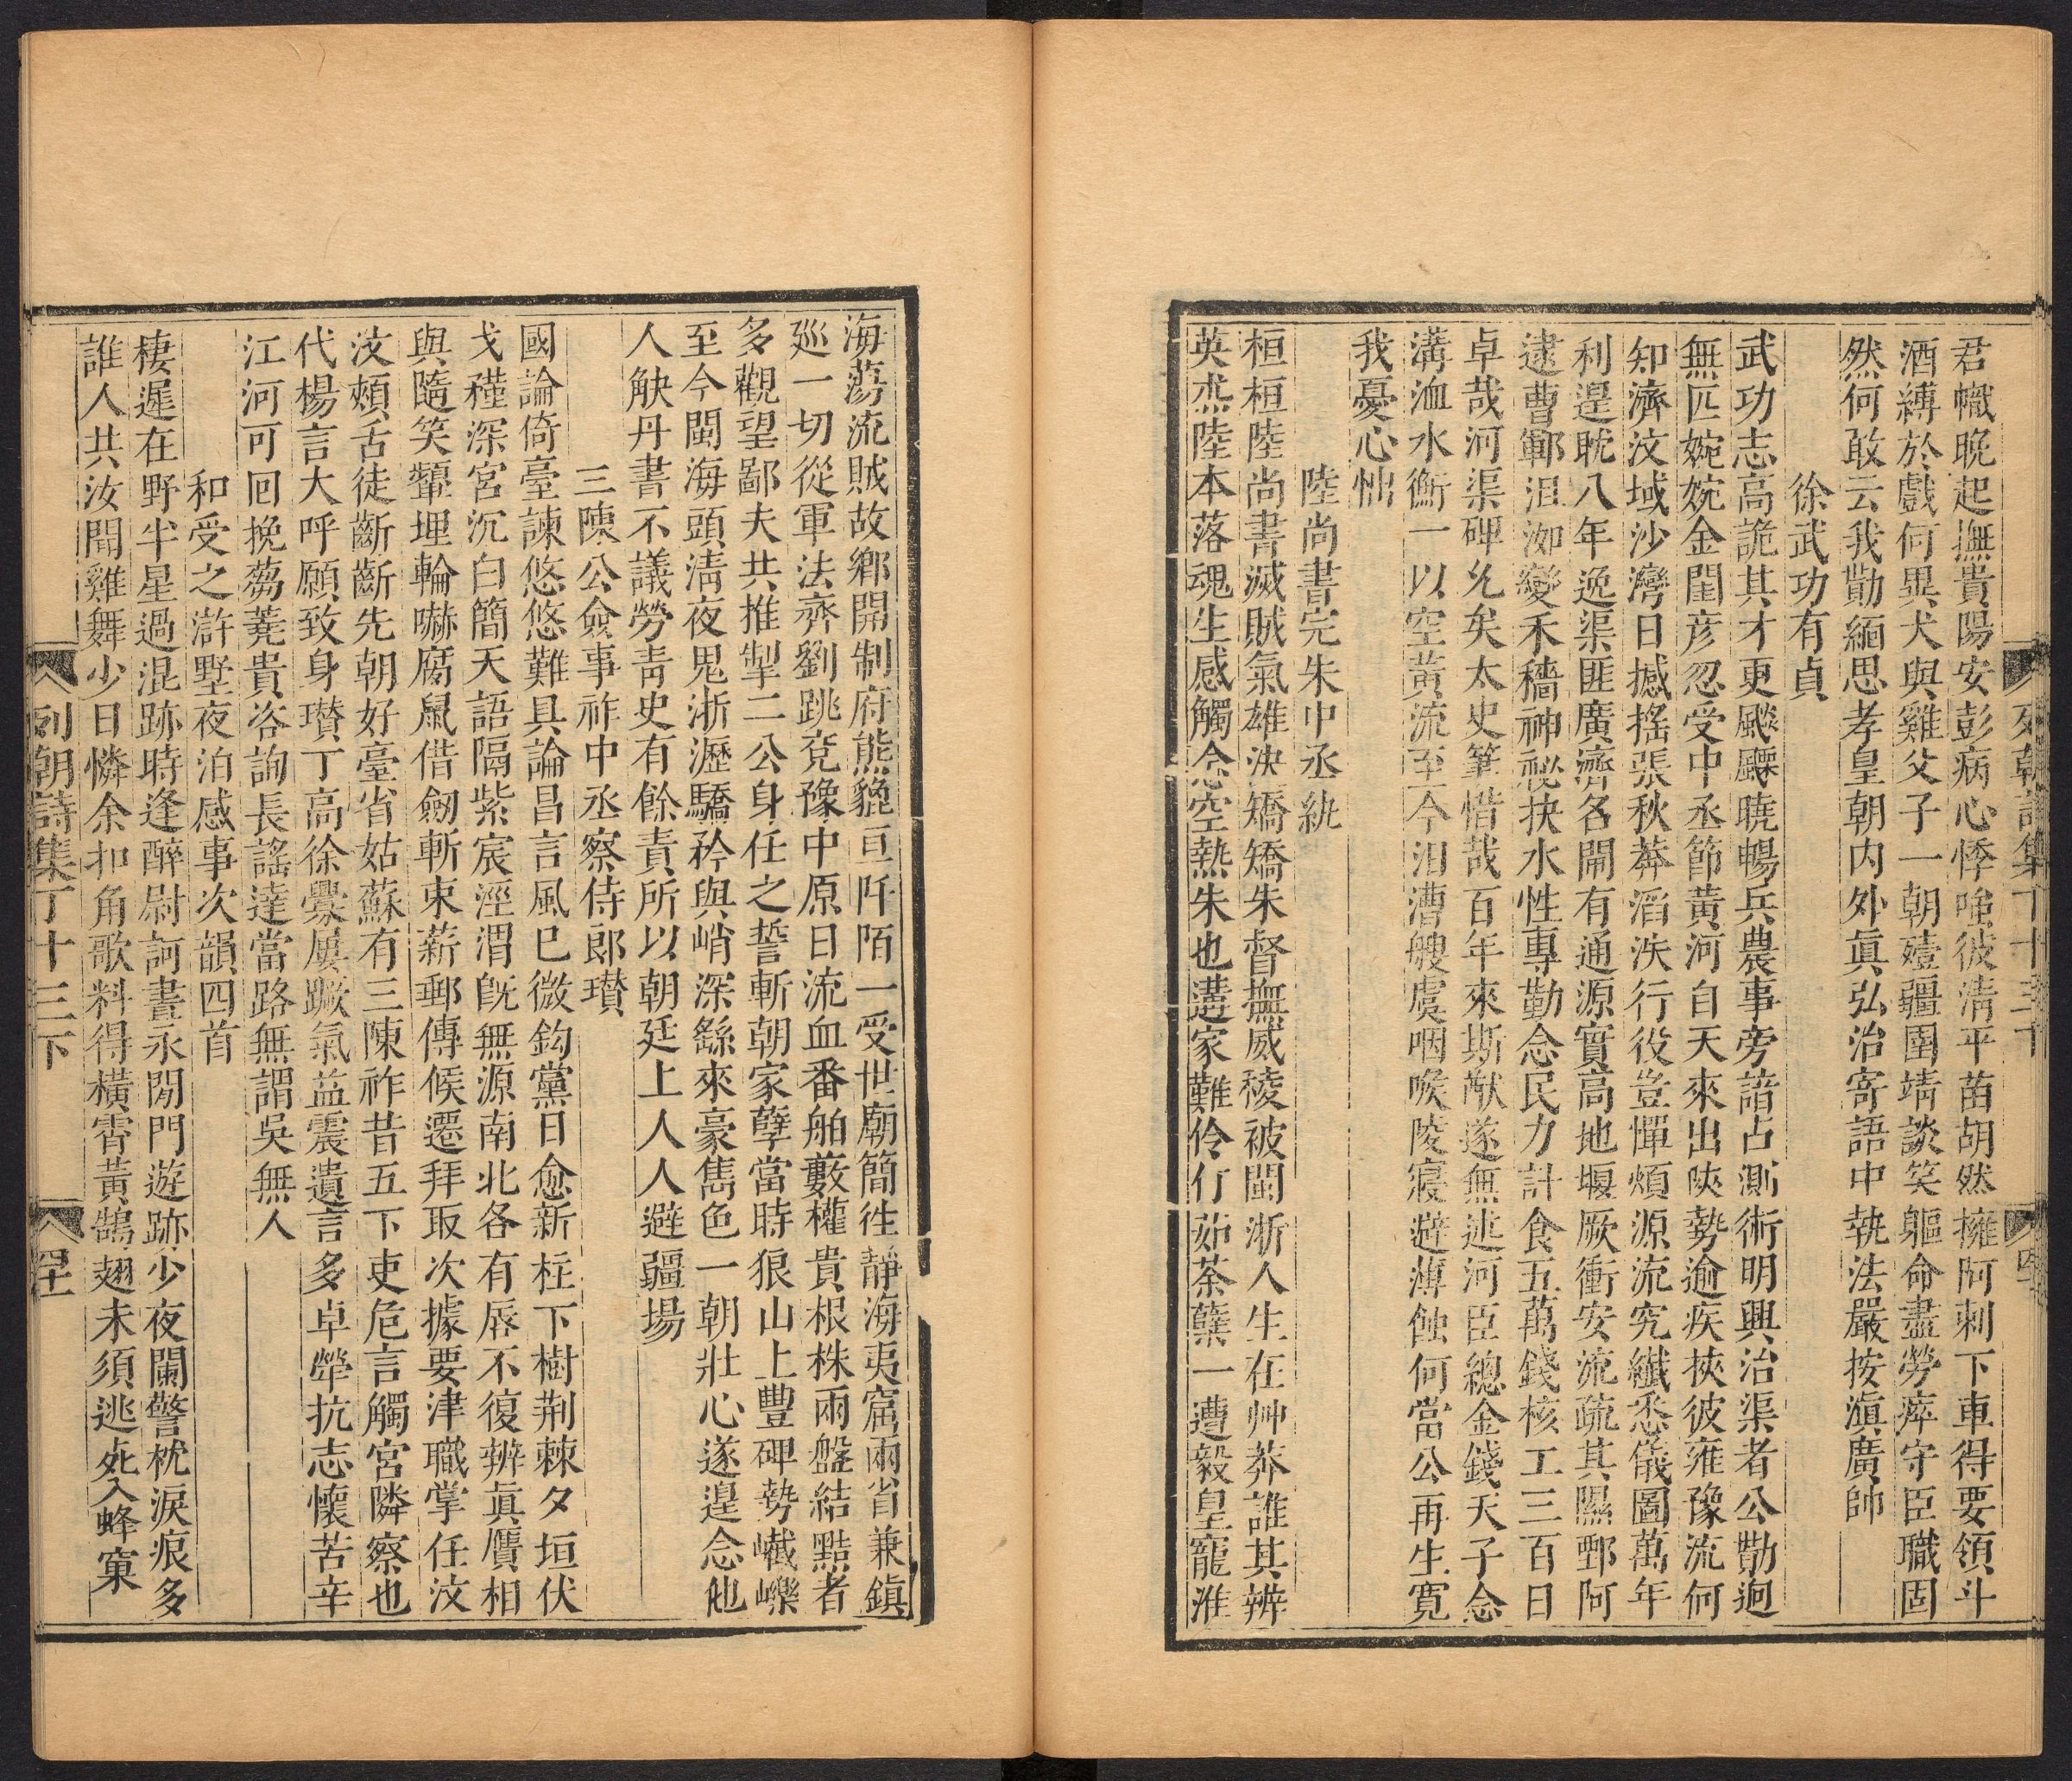 列朝詩集丁十三下
君幟晚起撫貴陽安彭病心悸喘彼淸平苗胡然擁阿剌下車得要領斗
酒縛於戲何異犬與雞父子一朝殪疆圉靖談笑軀命盡勞瘁守臣職固
然何敢云我勩緬思孝皇朝内外眞弘治寄語中執法嚴按滇廣帥
徐武功有貞
武功志高詭其才更颷颺曉暢兵農事旁諳占測術明興治渠者公勩迥
無匹婉婉金閨彦忽受中丞節黃河自天來出陝勢逾疾挾彼雍豫流何
知濟汶域沙灣日撼搖張秋莽滔泆行役豈憚煩源流究纖悉儀圖萬年
利遑眈八年逸渠匪廣濟各閘有通源實高地堰厥衝安流疏其隰鄄阿
逮曹鄆沮洳變禾穡神祕抉水性專勤念民力計食五萬錢核工三百日
卓哉河渠碑允矣太史筆惜哉百年來斯猷遂無述河臣總金錢天子念
溝洫水衡一以空黃流至今汨漕艘虞咽喉陵寢避薄蝕何當公再生寬
我憂心怞
陸尚書完朱中丞紈
桓桓陸尚書滅賊氣雄決矯矯朱督撫威稜被閩浙人生在艸莽誰其辨
英烝陸本落魂生感觸念空熱朱也遘家難伶仃茹荼櫱一遭毅皇寵淮
海蕩流賊故鄕開制府熊貔亘阡陌一受世廟簡往靜海夷窟兩省兼鎭
廵一切從軍法齊劉跳兗豫中原日流血番舶藪權貴根株兩盤結黠者
多觀望鄙夫共推掣二公身任之誓斬朝家孽當時狼山上豐碑勢嶻嶫
至今閩海頭淸夜鬼浙瀝驕矜與峭深繇來豪雋色一朝壯心遂遑念他
人觖丹書不議勞靑史有餘責所以朝廷上人人避疆場
三陳公僉事祚中丞察侍郎瓚
國論倚臺諫悠悠難具論昌言風已微鈎黨日愈新柱下樹荆棘夕垣伏
戈穫深宮沉白簡天語隔紫宸涇渭旣無源南北各有唇不復辨眞贋相
與隨笑顰埋輪嚇腐鼠借劒斬束薪郵傳候遷拜取次據要津職掌任汶
汶頰舌徒齗齗先朝好臺省姑蘇有三陳祚昔五下吏危言觸宮隣察也
代楊言大呼願致身瓚丁高徐釁屢蹶氣益震遺言多卓犖抗志懷苦辛
江河可囘挽蒭蕘貴咨詢長謠達當路無謂吳無人
和受之滸墅夜泊感事次韻四首
棲遲在野半星過混跡時逢醉尉訶晝永閉門遊跡少夜闌警枕淚痕多
誰人共汝聞雞舞少日憐余扣角歌料得橫霄黃鵠翅未須逃死入蜂窠
列朝詩集丁十三下